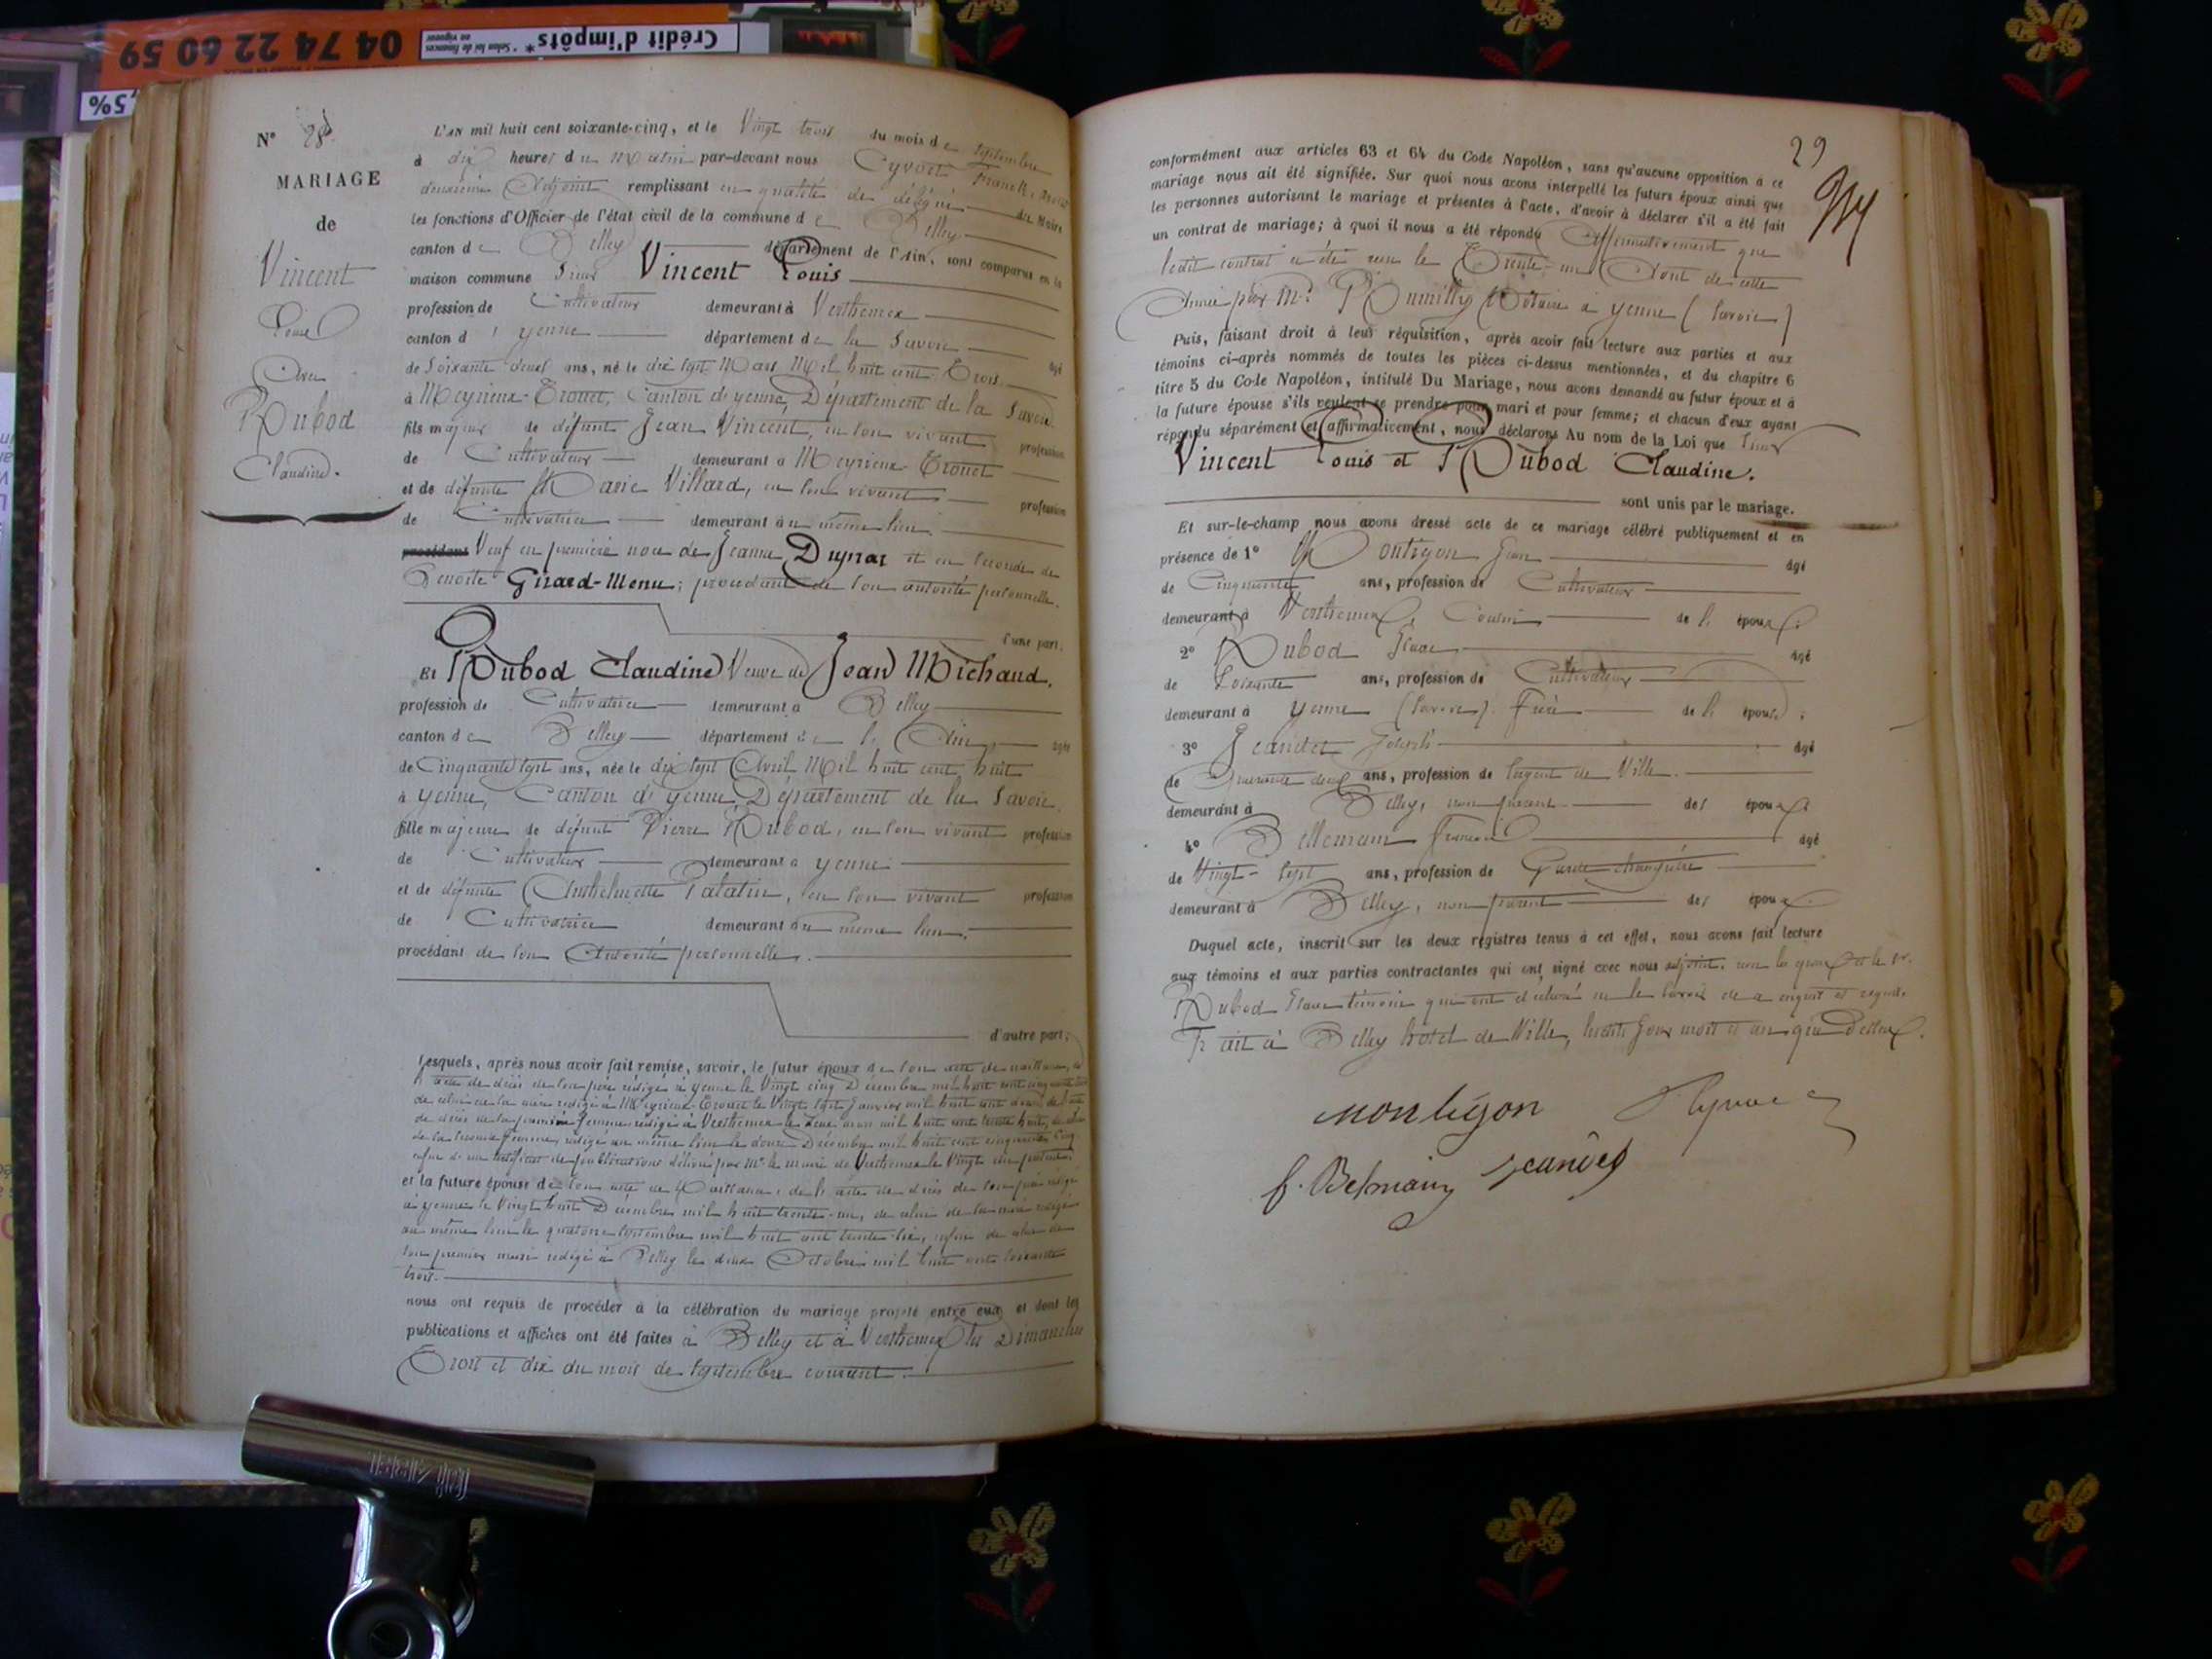 04 74 22 60 59
Crédit d'impôts*
* Selon loi de finances
en vigueur
,5%
N° 28
MARIAGE
de
Vincent
Louis
Avec
Dubod
Claudine.
L'AN mil huit cent soixante-cinq, et le Vingt trois du mois de Septembre
à dix heures du Matin par-devant nous Cyvoct Franck,
deuxième Adjoint remplissant en qualité de délégué du Maire
les fonctions d'Officier de l'état civil de la commune de Belley
canton de Belley département de l'Ain, sont comparus en la
maison commune Sieur Vincent Louis
profession de Cultivateur demeurant à Verthemex
canton d'yenne département de la Savoie
de Soixante deux ans, né le dix sept Mars Mil huit cent Trois âgé
à Meyrieux-Trouet, Canton d'yenne, Département de la Savoie.
fils majeur de défunt Jean Vincent, en son vivant profession
de Cultivateur demeurant à Meyrieux-Trouet
et de défunte Marie Villard, en son vivant profession
de Cultivatrice demeurant au même lieu
procédant Veuf en première noce de Jeanne Duprat et en seconde de
Benoite Girard-Menu; procédant de son autorité personnelle.
d'une part.
Et Dubod Claudine Veuve de Jean Michaud.
profession de Cultivatrice demeurant à Belley
canton de Belley département de l'Ain, âgée
de Cinquante sept ans, née le dix sept Avril Mil huit cent huit
à yenne, Canton d'yenne, Département de la Savoie,
fille majeure de défunt Pierre Dubod, en son vivant profession
de Cultivateur demeurant à yenne
et de défunte Anthelmette Palatin, en son vivant profession
de Cultivatrice demeurant au même lieu.
procédant de son Autorité personnelle.
d'autre part;
Lesquels, après nous avoir fait remise, savoir, le futur époux de son acte de naissance, de
l'acte de décès de son père rédigé à yenne le Vingt cinq Décembre mil huit cent cinquante
de celui de sa mère rédigé à Meyrieux-Trouet le Vingt sept Janvier mil huit cent
de décès de sa première femme rédigé à Verthemex le deux mars mil huit cent trente huit, de celui
de sa seconde femme, rédigé au même lieu le douze Décembre mil huit cent cinquante cinq
enfin d'un certificat de publications délivré par Mr le maire de Verthemex le Vingt du présent
et la future épouse de son acte de Naissance, de l'acte de décès de son père rédigé
à yenne le Vingt huit Décembre mil huit trente-un, de celui de sa mère rédigé
au même lieu le quatorze septembre mil huit cent trente-six, enfin de celui de
son premier mari rédigé à Belley le deux Octobre mil huit cent soixante
trois.
nous ont requis de procéder à la célébration du mariage projeté entre eux et dont les
publications et affiches ont été faites à Belley et à Verthemex les Dimanches
Trois et dix du mois de septembre courant.
29
conformément aux articles 63 et 64 du Code Napoléon, sans qu'aucune opposition à ce
mariage nous ait été signifiée. Sur quoi nous avons interpellé les futurs époux ainsi que
les personnes autorisant le mariage et présentes à l'acte, d'avoir à déclarer s'il a été fait
un contrat de mariage; à quoi il nous a été répondu Affirmativement que
ledit contrat a été reçu le Trente-un Août de cette
Année par Me Rumilly Notaire à yenne (Savoie)
Puis, faisant droit à leur réquisition, après avoir fait lecture aux parties et aux
témoins ci-après nommés de toutes les pièces ci-dessus mentionnées, et du chapitre 6
titre 5 du Code Napoléon, intitulé Du Mariage, nous avons demandé au futur époux et à
la future épouse s'ils veulent se prendre pour mari et pour femme; et chacun d'eux ayant
répondu séparément et affirmativement, nous déclarons Au nom de la Loi que Sieur
Vincent Louis et Dubod Claudine.
sont unis par le mariage.
Et sur-le-champ nous avons dressé acte de ce mariage célébré publiquement et en
présence de 1° Montigon Jean âgé
de Cinquante ans, profession de Cultivateur
demeurant à Verthemex, Cousin de l'époux;
2° Dubod âgé
de Soixante ans, profession de Cultivateur
demeurant à Yenne (Savoie). Frère de l'épouse;
3° Jeandet Joseph âgé
de Quarante deux ans, profession de Sergent de Ville.
demeurant à Belley, non parent des époux;
4° Bellemain François âgé
de Vingt-sept ans, profession de Garde champêtre
demeurant à Belley, non parent des époux.
Duquel acte, inscrit sur les deux registres tenus à cet effet, nous avons fait lecture
aux témoins et aux parties contractantes qui ont signé avec nous adjoint, non les époux et le Sr.
Dubod témoin qui ont déclaré ne le savoir de ce enquis et requis.
Fait à Belley hôtel de Ville, lesdits jour mois et an que Dessus.
Montigon
Cyvoct
f. Belmain Jeandet